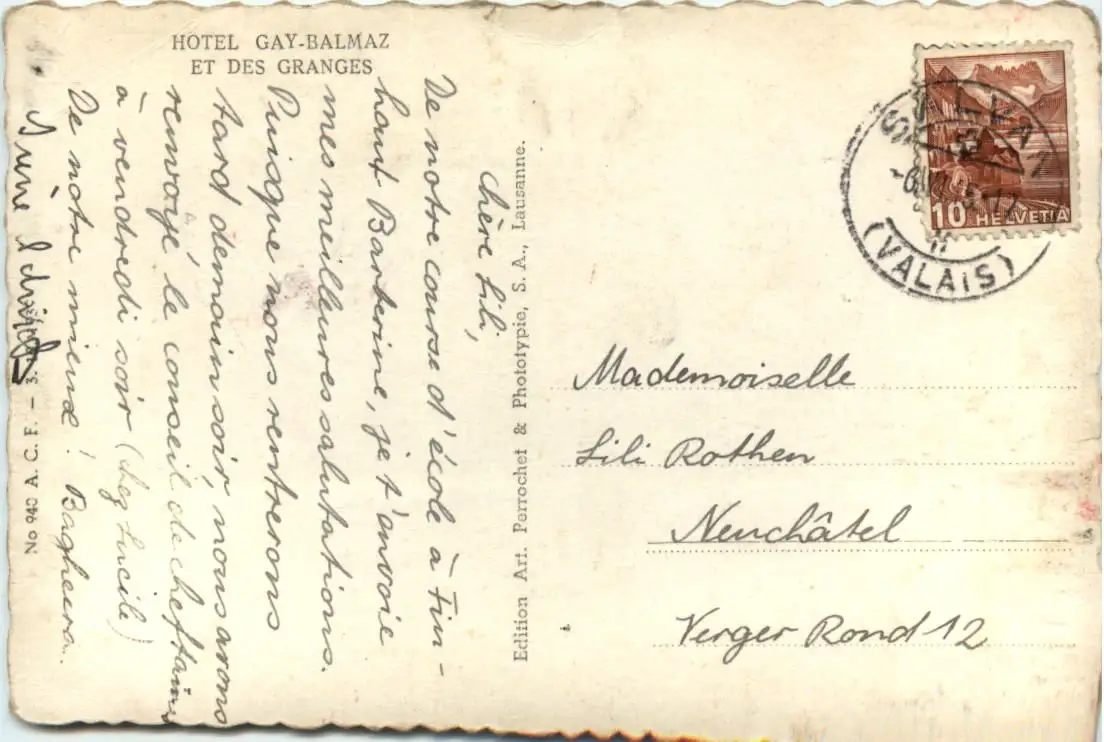 HOTEL GAY-BALMAZ
ET DES GRANGES
chère Lili,
De notre course d'école à Fin-
haut Barberine, je t'envoie
mes meilleures salutations.
Puisque nous rentrerons
tard demain soir, nous avons
renvoyé le conseil de cheftaines
à vendredi soir (chez Lucile)
De notre mieux! Bagheera.
No 940 A. C. F. – 3.
Edition Art. Perrochet & Phototypie, S. A., Lausanne.
SALVAN
(VALAIS)
10 HELVETIA
Mademoiselle
Lili Rothen
Neuchâtel
Verger Rond 12